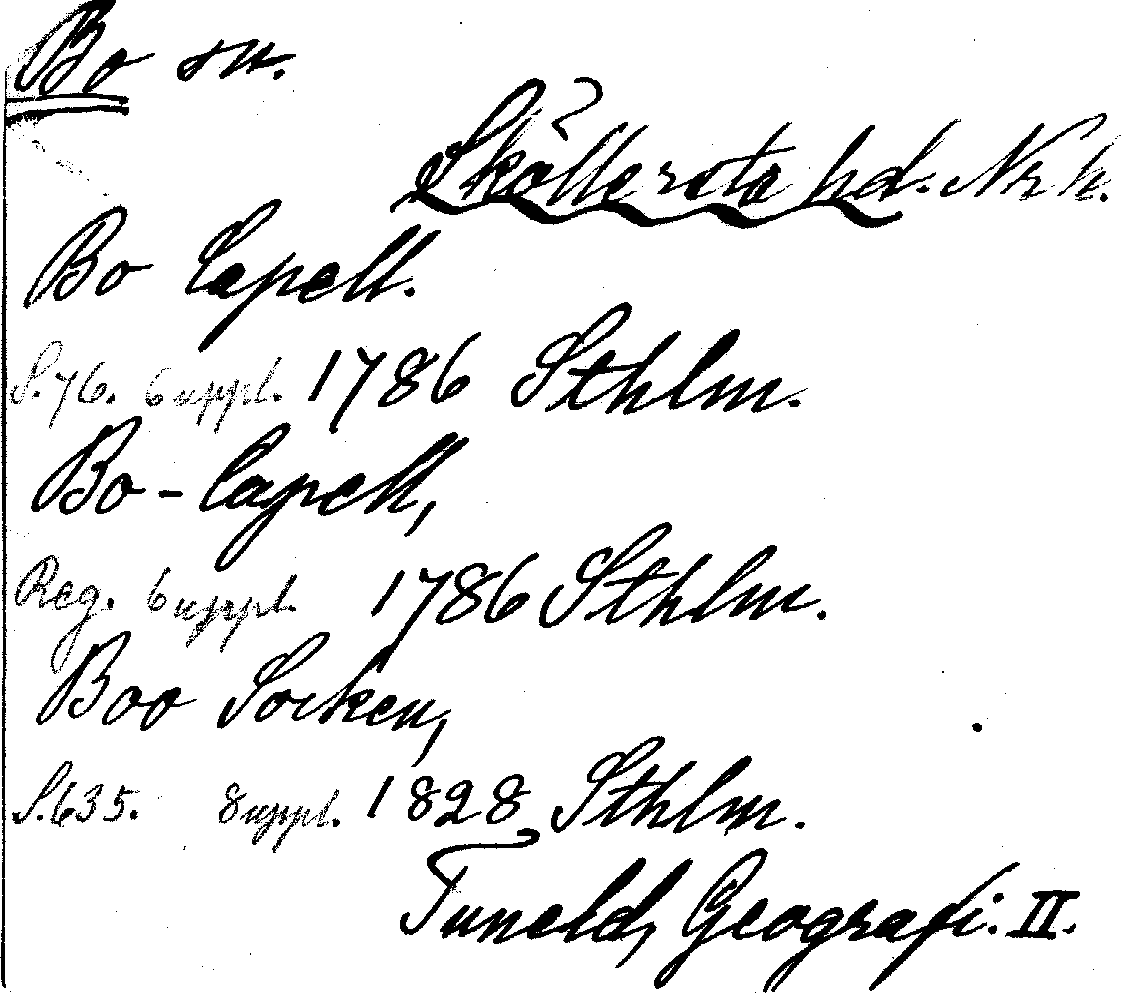 Bo sn.
Sköllersta hd. Nrk.
Bo Capell.
S. 76. 6 uppl. 1786 Sthlm.
Bo-Capell,
Reg. 6 uppl. 1786 Sthlm.
Boo Socken,
S. 635. 8 uppl. 1828 Sthlm.
Tuneld, Geografi. II.